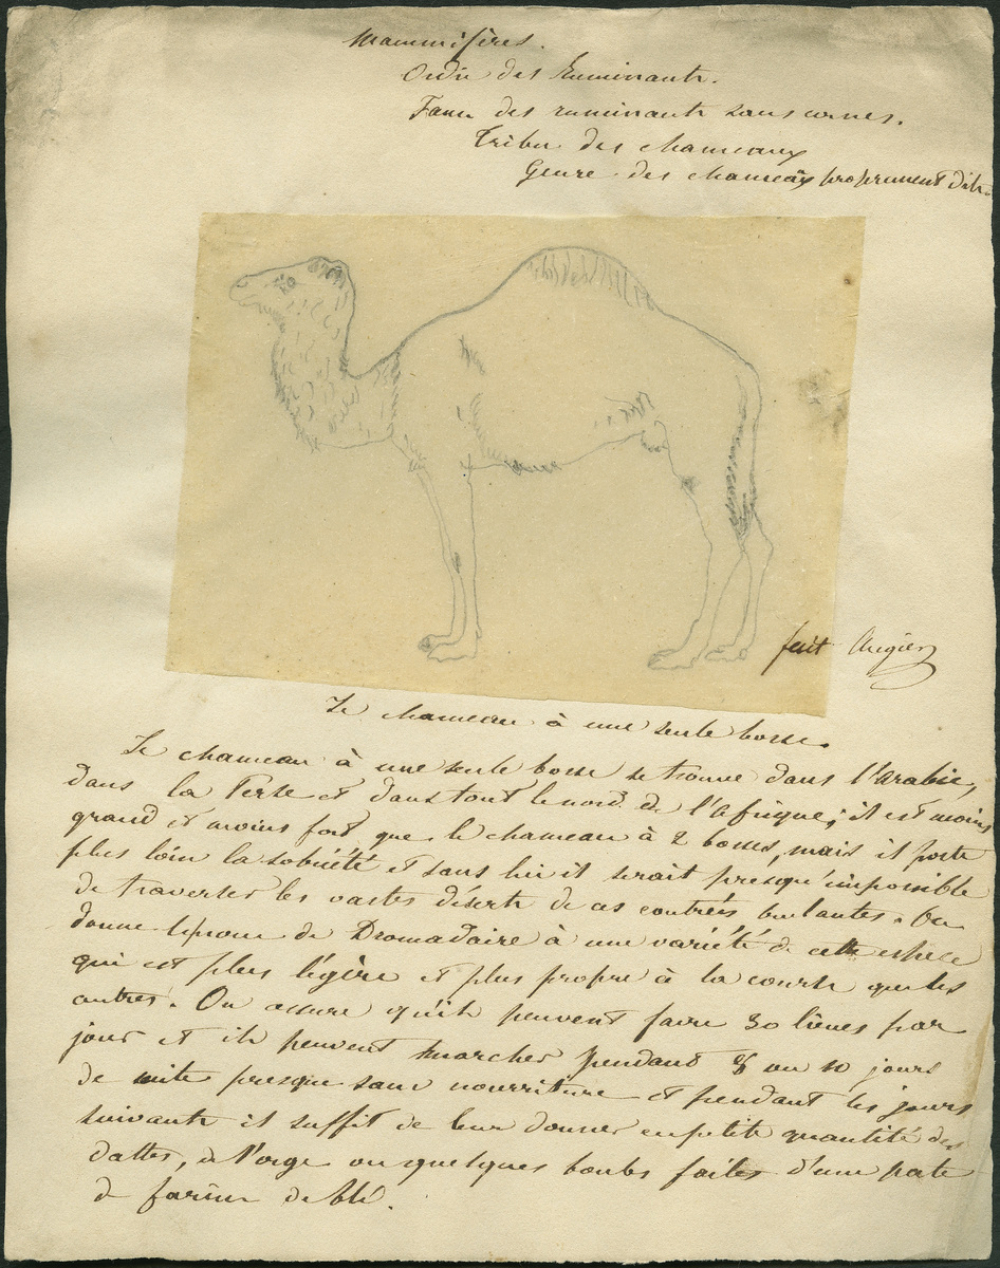 Mammifères.
Ordre des Ruminants.
Fam. des ruminants sans cornes.
Tribu des chameaux
Genre des chameaux proprement dits
fait Augier
Le chameau à une seule bosse.
Le chameau à une seule bosse se trouve dans l'Arabie,
dans la Perse et dans tout le nord de l'Afrique; il est moins
grand et moins fort que le chameau à 2 bosses, mais il porte
plus loin la sobriété et sans lui il serait presqu'impossible
de traverser les vastes déserts de ces contrées brulantes. On
donne le nom de Dromadaire à une variété de cette espèce
qui est plus légère et plus propre à la course que les
autres. On assure qu'ils peuvent faire 30 lieues par
jour et ils peuvent marcher pendant ou 10 jours
de suite presque sans nourriture et pendant les jours
suivants il suffit de leur donner en petite quantité des
dattes, de l'orge ou quelques boules faites d'une pate
de farine de blé.